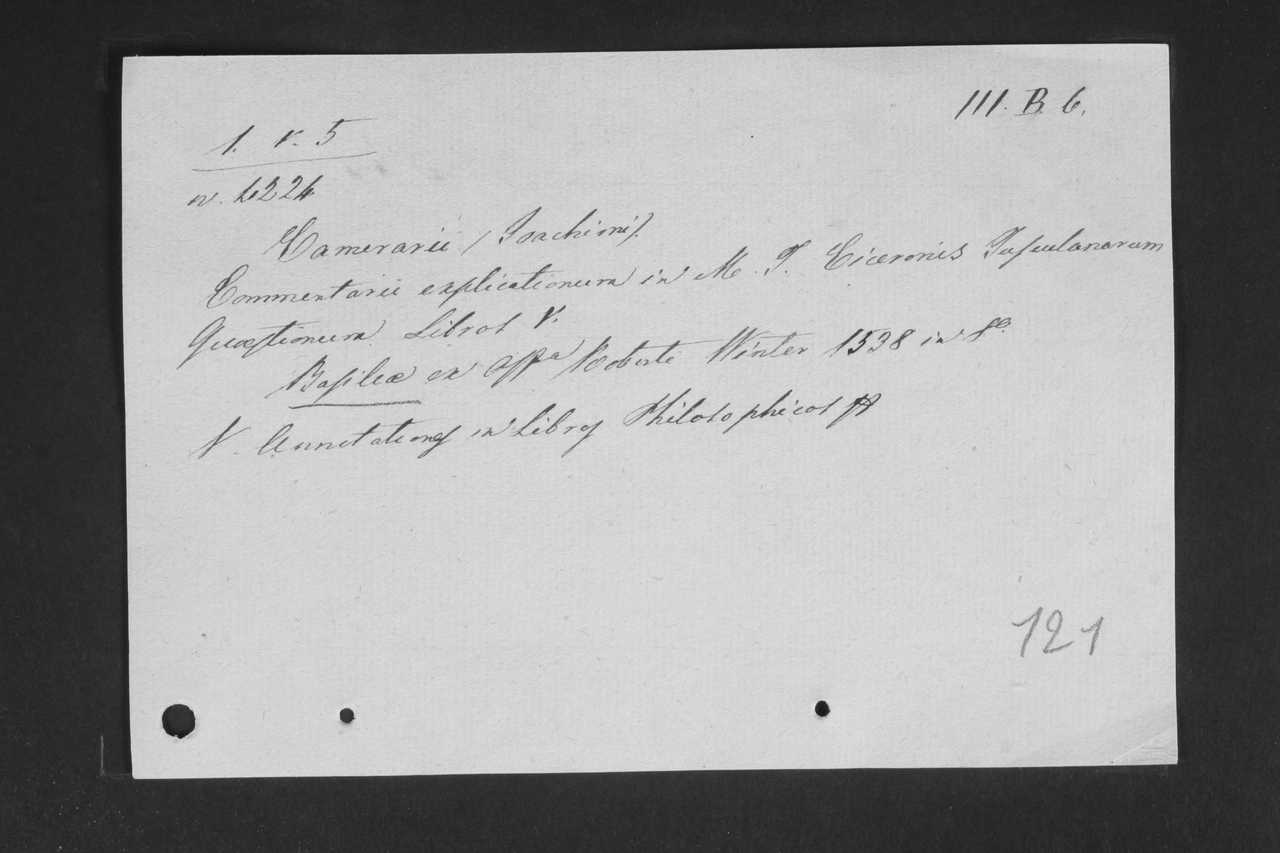 III. B. 6.
1. V. 5
n. 4224
Camerarii (Joachimi).
Commentarii explicationum in M. T. Ciceronis Tusculanarum
Quæstionum Libros V.
Basileæ ex offᵃ Roberti Winter 1538 in 8º
N. Annotationes in Libros Philosophicos
121